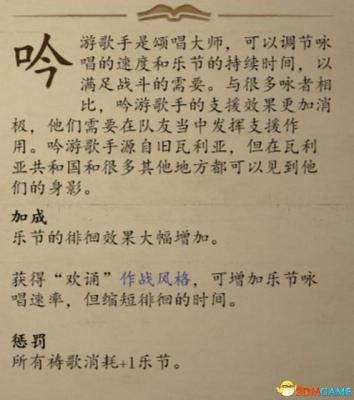 吟游歌手是颂唱大师，可以调节咏
唱的速度和乐节的持续时间，以
满足战斗的需要。与很多咏者相
比，吟游歌手的支援效果更加消
极，他们需要在队友当中发挥支援作
用。吟游歌手源自旧瓦利亚，但在瓦利
亚共和国和很多其他地方都可以见到他
们的身影。
加成
乐节的徘徊效果大幅增加。
获得“欢诵”作战风格，可增加乐节咏
唱速率，但缩短徘徊的时间。
惩罚
所有祷歌消耗+1乐节。
3DMGAME